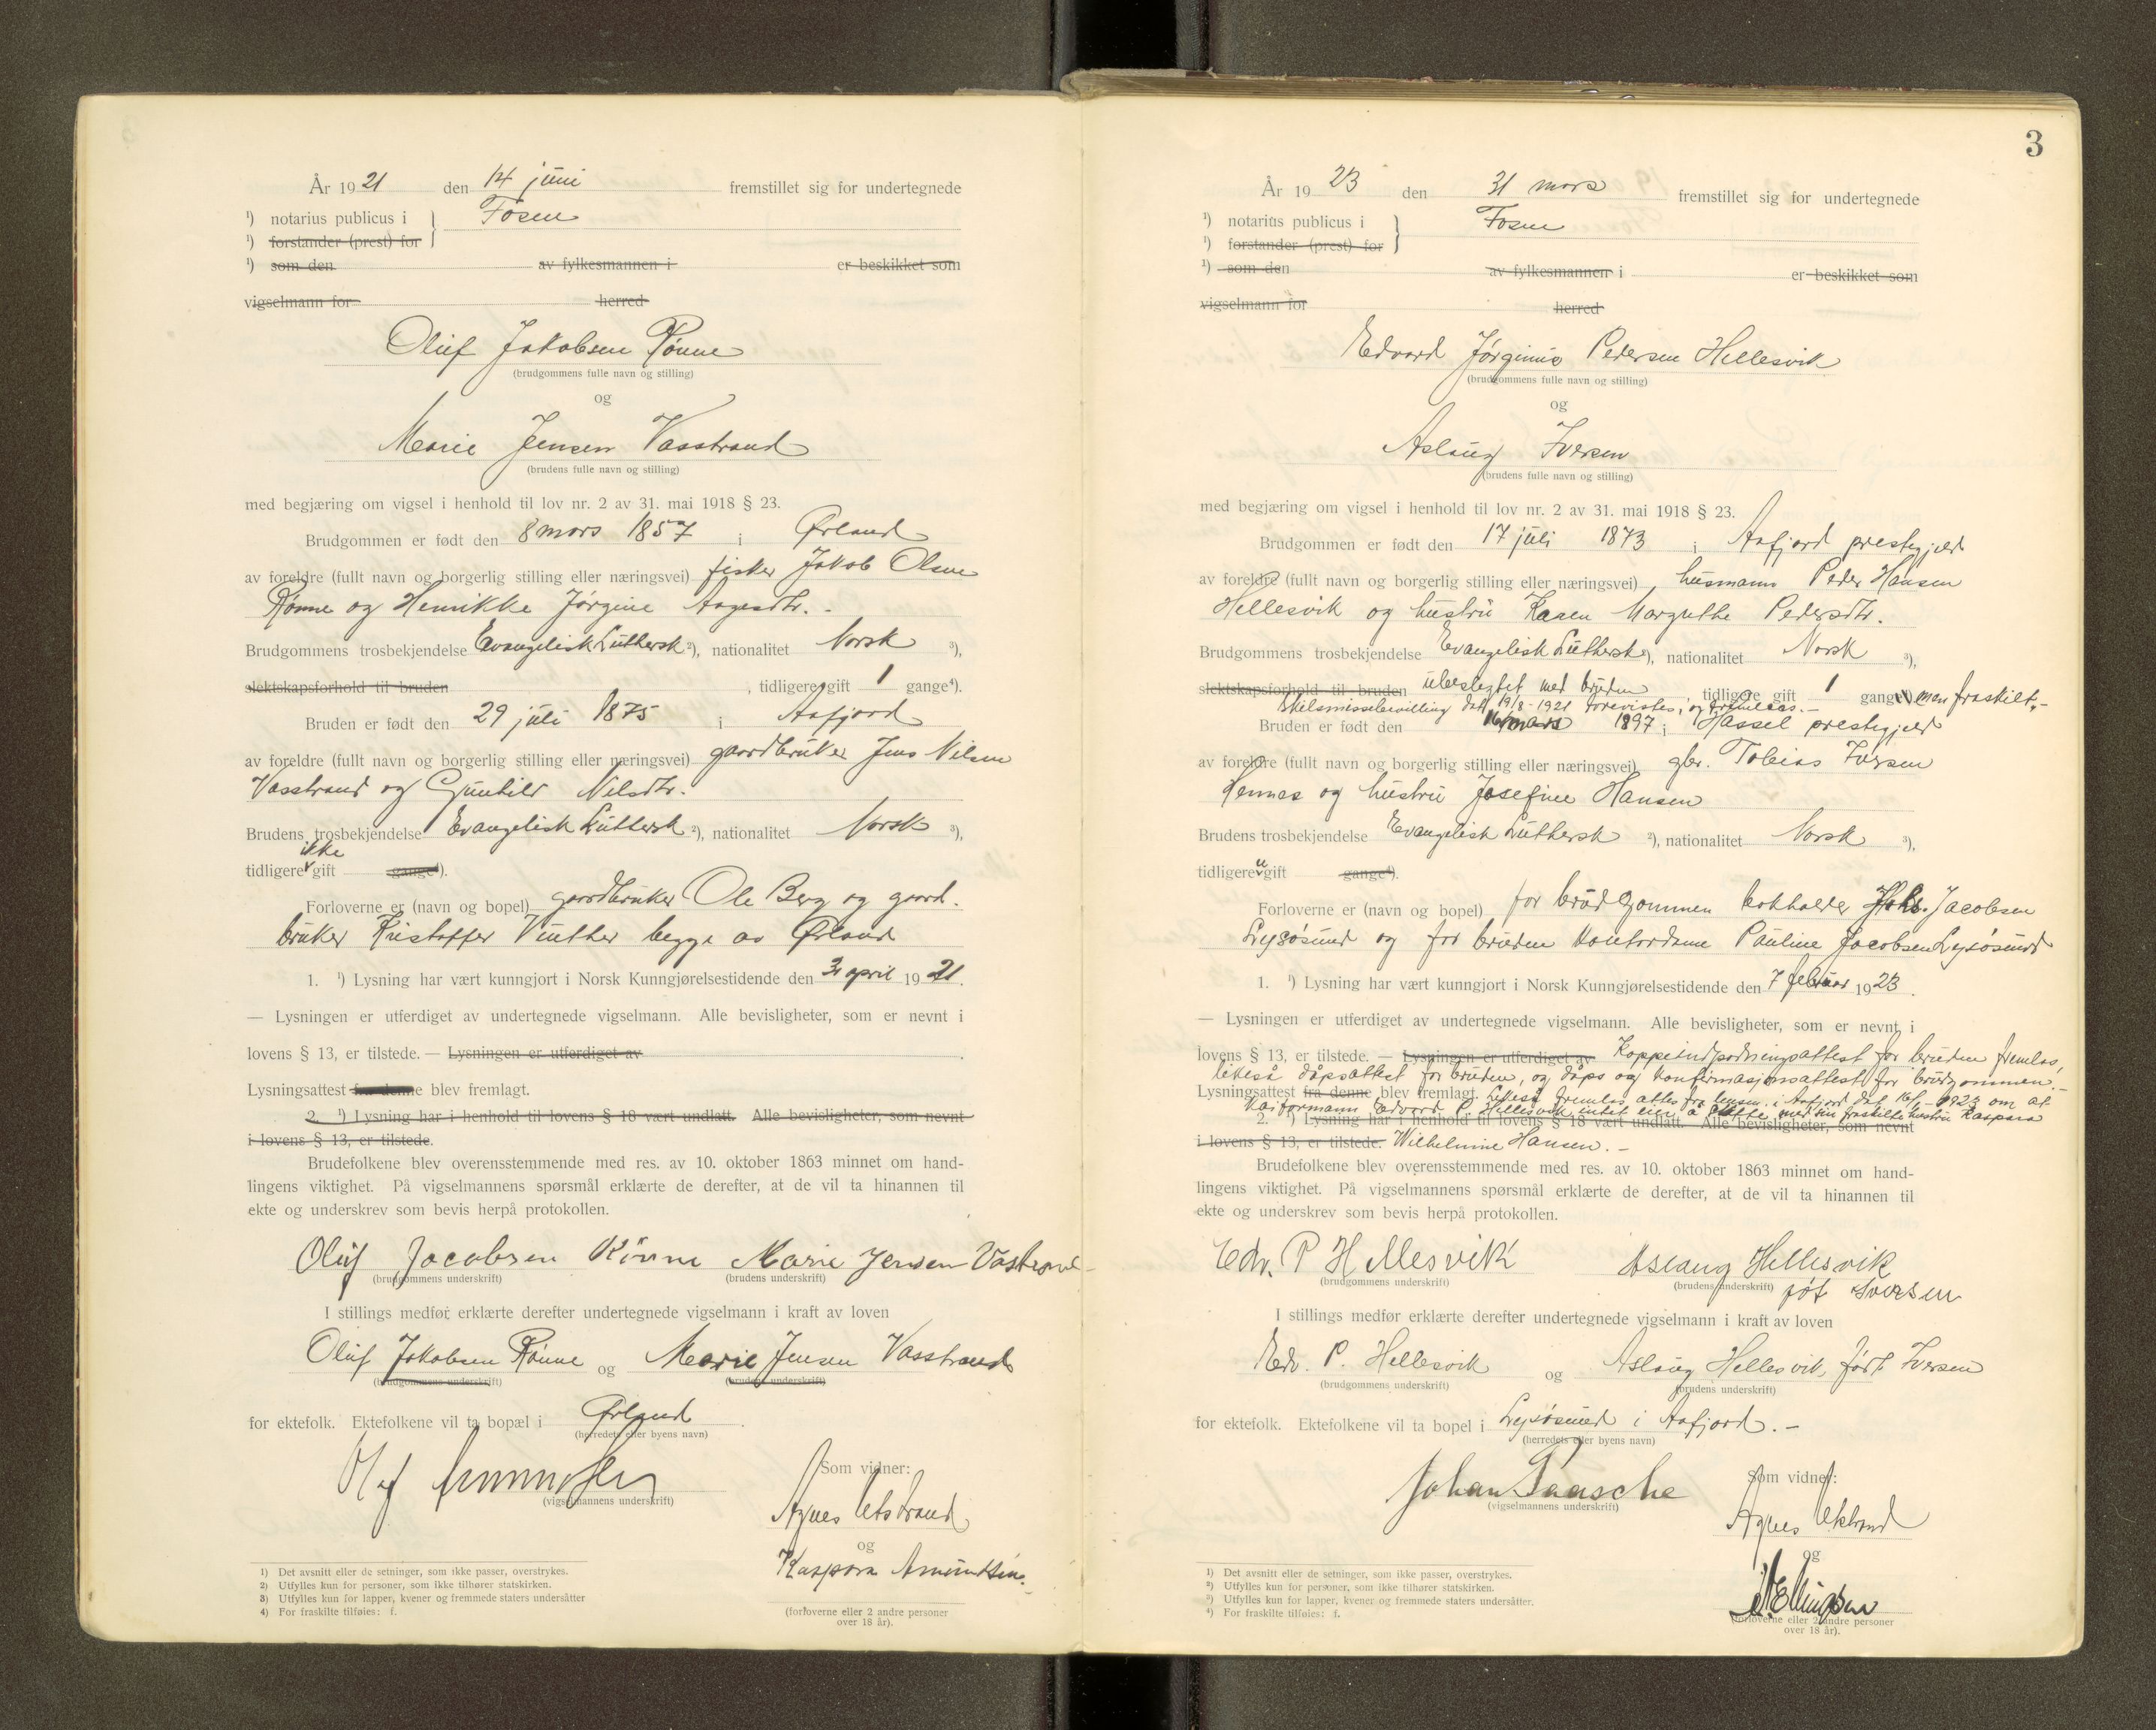 År 1921 den 14 juni fremstillet sig for undertegnede
¹) notarius publicus i Fosen
¹) forstander (prest) for
¹) som den av fylkesmannen i er beskikket som
vigselmann for herred
Oluf Jakobsen Rønne
(brudgommens fulle navn og stilling)
og
Marie Jensen Vasstrand
(brudens fulle navn og stilling)
med begjæring om vigsel i henhold til lov nr. 2 av 31. mai 1918 § 23.
Brudgommen er født den 8 mars 1857 i Ørland
av foreldre (fullt navn og borgerlig stilling eller næringsvei) fisker Jakob Olsen
Rønne og Henrikke Jørgine Aagesdtr. -
Brudgommens trosbekjendelse Evangelisk Luthersk ²), nationalitet Norsk ³),
slektskapsforhold til bruden , tidligere gift 1 gange⁴).
Bruden er født den 29 juli 1875 i Aafjord
av foreldre (fullt navn og borgerlig stilling eller næringsvei) gaardbruker Jens Nilsen
Vasstrand og Gunhild Nilsdtr.
Brudens trosbekjendelse Evangelisk Luthersk ²), nationalitet Norsk ³),
ikke
tidligere gift gange⁴).
Forloverne er (navn og bopel) gaardbruker Ole Berg og gaard-
bruker Kristoffer Vinther begge av Ørland
1. ¹) Lysning har vært kunngjort i Norsk Kunngjørelsestidende den april 1921.
— Lysningen er utferdiget av undertegnede vigselmann. Alle bevisligheter, som er nevnt i
lovens § 13, er tilstede. — Lysningen er utferdiget av .
Lysningsattest fra denne blev fremlagt.
2. ¹) Lysning har i henhold til lovens § 18 vært undlatt. Alle bevisligheter, som nevnt
i lovens § 13, er tilstede.
Brudefolkene blev overensstemmende med res. av 10. oktober 1863 minnet om hand-
lingens viktighet. På vigselmannens spørsmål erklærte de derefter, at de vil ta hinannen til
ekte og underskrev som bevis herpå protokollen.
Oluf Jacobsen Rønne Marie Jensen Vastrand
(brudgommens underskrift) (brudens underskrift)
I stillings medfør erklærte derefter undertegnede vigselmann i kraft av loven
Oluf Jakobsen Rønne og Marie Jensen Vasstrand
(brudgommens underskrift) (brudens underskrift)
for ektefolk. Ektefolkene vil ta bopæl i Ørland .
(herredets eller byens navn)
Som vidner:
(vigselmannens underskrift)
Agnes Utstrand
og
Kaspara Amundsen.
1) Det avsnitt eller de setninger, som ikke passer, overstrykes.
2) Utfylles kun for personer, som ikke tilhører statskirken.
3) Utfylles kun for lapper, kvener og fremmede staters undersåtter
4) For fraskilte tilføies: f.
(forloverne eller 2 andre personer
over 18 år).
3
År 1923 den 31 mars fremstillet sig for undertegnede
¹) notarius publicus i Fosen
¹) forstander (prest) for
¹) som den av fylkesmannen i er beskikket som
vigselmann for herred
Edvard Jørginus Pedersen Hellesvik
(brudgommens fulle navn og stilling)
og
Aslaug Iversen
(brudens fulle navn og stilling)
med begjæring om vigsel i henhold til lov nr. 2 av 31. mai 1918 § 23.
Brudgommen er født den 17 juli 1873 i Aafjord prestegjeld
av foreldre (fullt navn og borgerlig stilling eller næringsvei) husmann Peder Hansen
Hellesvik og hustru Karen Margrethe Pedersdtr.
Brudgommens trosbekjendelse Evangelisk Luthersk ²), nationalitet Norsk ³),
slektskapsforhold til bruden ubeslegtet med bruden , tidligere gift 1 gange⁴) men fraskilt.-
Skilsmissebevilling dat. 19/8-1921 forevistes, og fremlaas.-
Bruden er født den 16 mars 1897 i Hassel prestegjeld
av foreldre (fullt navn og borgerlig stilling eller næringsvei) gbr. Tobias Iversen
Hennes og hustru Josefine Hansen
Brudens trosbekjendelse Evangelisk Luthersk ²), nationalitet Norsk ³),
u
tidligere gift gange⁴).
Forloverne er (navn og bopel) for brudgommen bokholder Johs. Jacobsen
Lysøsund og for bruden kontordame Pauline Jacobsen Lysøsund
1. ¹) Lysning har vært kunngjort i Norsk Kunngjørelsestidende den 7 februar 1923.
— Lysningen er utferdiget av undertegnede vigselmann. Alle bevisligheter, som er nevnt i
lovens § 13, er tilstede. — Lysningen er utferdiget av Koppeindpodningsattest for bruden fremlaa,
likeså dåpsattest for bruden, og dåps og konfirmasjonsattest for brudgommen.-
Lysningsattest fra denne blev fremlagt. Likeså fremlaa attest fra lensm. i Aafjord dat. 16/1-1923 om at
kaiformann Edvard P. Hellesvik intet eier å skifte med sin fraskilte hustru Kaspara
2. ¹) Lysning har i henhold til lovens § 18 vært undlatt. Alle bevisligheter, som nevnt
i lovens § 13, er tilstede. Wilhelmine Hansen.-
Brudefolkene blev overensstemmende med res. av 10. oktober 1863 minnet om hand-
lingens viktighet. På vigselmannens spørsmål erklærte de derefter, at de vil ta hinannen til
ekte og underskrev som bevis herpå protokollen.
Edv. P Hellesvik Aslaug Hellesvik
(brudgommens underskrift) (brudens underskrift) føt Iversen
I stillings medfør erklærte derefter undertegnede vigselmann i kraft av loven
Edv. P. Hellesvik og Aslaug Hellesvik, født Iversen
(brudgommens underskrift) (brudens underskrift)
for ektefolk. Ektefolkene vil ta bopel i Lysøsund i Aafjord.-
(herredets eller byens navn)
Johan Paasche Som vidner:
(vigselmannens underskrift)
Agnes Utstrand
og
Ellingsen
1) Det avsnitt eller de setninger, som ikke passer, overstrykes.
²) Utfylles kun for personer, som ikke tilhører statskirken.
³) Utfylles kun for lapper, kvener og fremmede staters undersåtter.
⁴) For fraskilte tilføies: f.
(forloverne eller 2 andre personer
over 18 år).